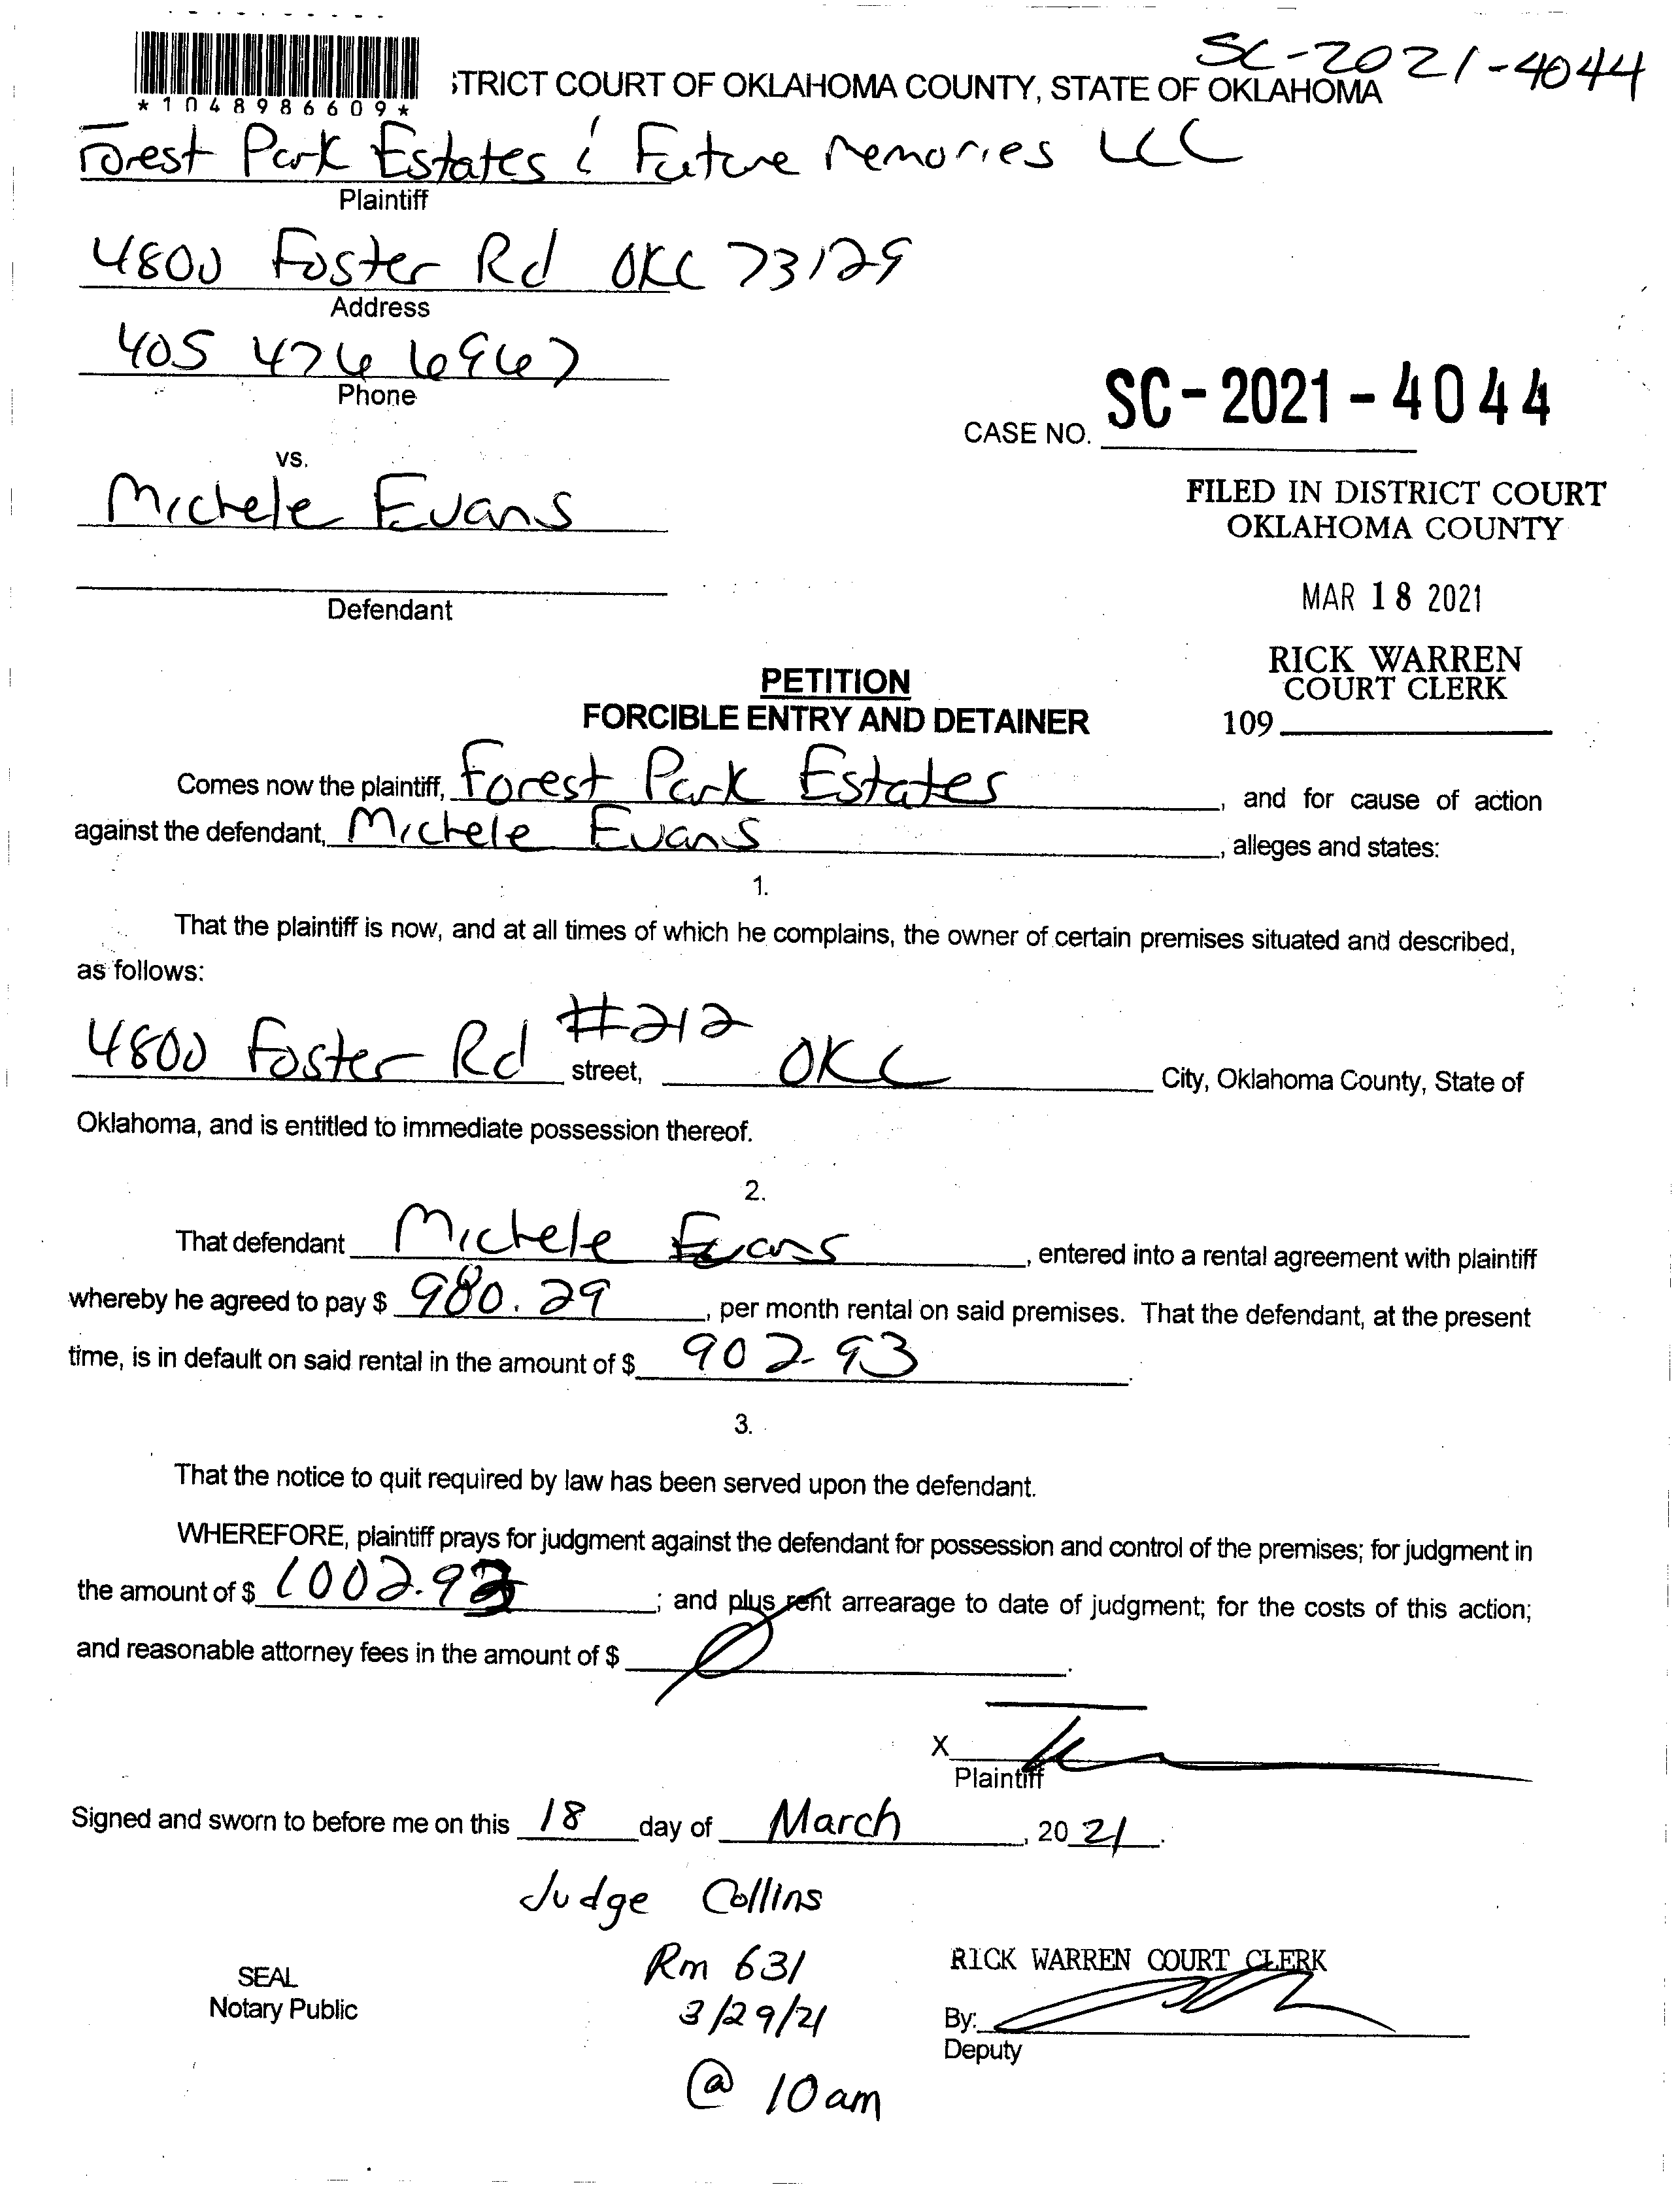 SC-2021-4044
STRICT COURT OF OKLAHOMA COUNTY, STATE OF OKLAHOMA
*1048986609*
Forest Park Estates & Future Memories LLC
Plaintiff
4800 Foster Rd OKC 73129
Address
405 476 6967
Phone
CASE NO. SC-2021-4044
vs.
Michele Evans
FILED IN DISTRICT COURT
OKLAHOMA COUNTY
Defendant
MAR 18 2021
RICK WARREN
COURT CLERK
109
PETITION
FORCIBLE ENTRY AND DETAINER
Comes now the plaintiff, Forest Park Estates, and for cause of action
against the defendant, Michele Evans, alleges and states:
1.
That the plaintiff is now, and at all times of which he complains, the owner of certain premises situated and described,
as follows:
4800 Foster Rd #212 street, OKC City, Oklahoma County, State of
Oklahoma, and is entitled to immediate possession thereof.
2.
That defendant Michele Evans, entered into a rental agreement with plaintiff
whereby he agreed to pay $ 980.29, per month rental on said premises. That the defendant, at the present
time, is in default on said rental in the amount of $ 902.93.
3.
That the notice to quit required by law has been served upon the defendant.
WHEREFORE, plaintiff prays for judgment against the defendant for possession and control of the premises; for judgment in
the amount of $ 1002.93; and plus rent arrearage to date of judgment; for the costs of this action;
and reasonable attorney fees in the amount of $ Ø.
X
Plaintiff
Signed and sworn to before me on this 18 day of March, 2021.
Judge Collins
Rm 631
3/29/21
@ 10am
SEAL
Notary Public
RICK WARREN COURT CLERK
By:
Deputy